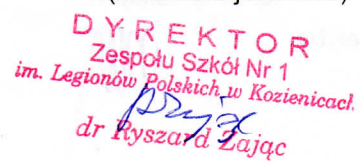 DYREKTOR
Zespołu Szkół Nr 1
im. Legionów Polskich w Kozienicach
dr Ryszard Zając